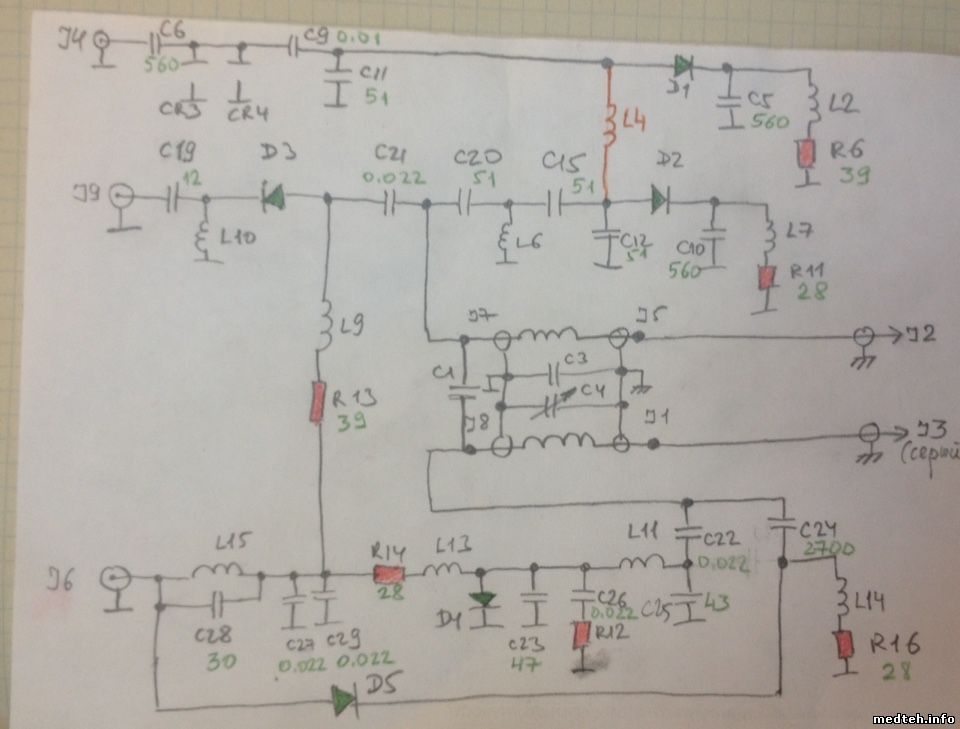 J4
C6
560
CR3
CR4
C9 0.01
C11
51
L4
D1
C5
560
L2
R6
39
J9
C19
12
L10
D3
C21
0.022
C20
51
L6
C15
51
C12
51
D2
C10
560
L7
R11
28
L9
R13
39
J7
J5
J2
C1
C3
C4
J8
J1
J3
(серый
J6
L15
C28
30
C27
0.022
C29
0.022
R14
28
L13
D4
C23
47
C26
0.022
R12
L11
C22
0.022
C25
43
C24
2700
L14
R16
28
D5
medteh.info